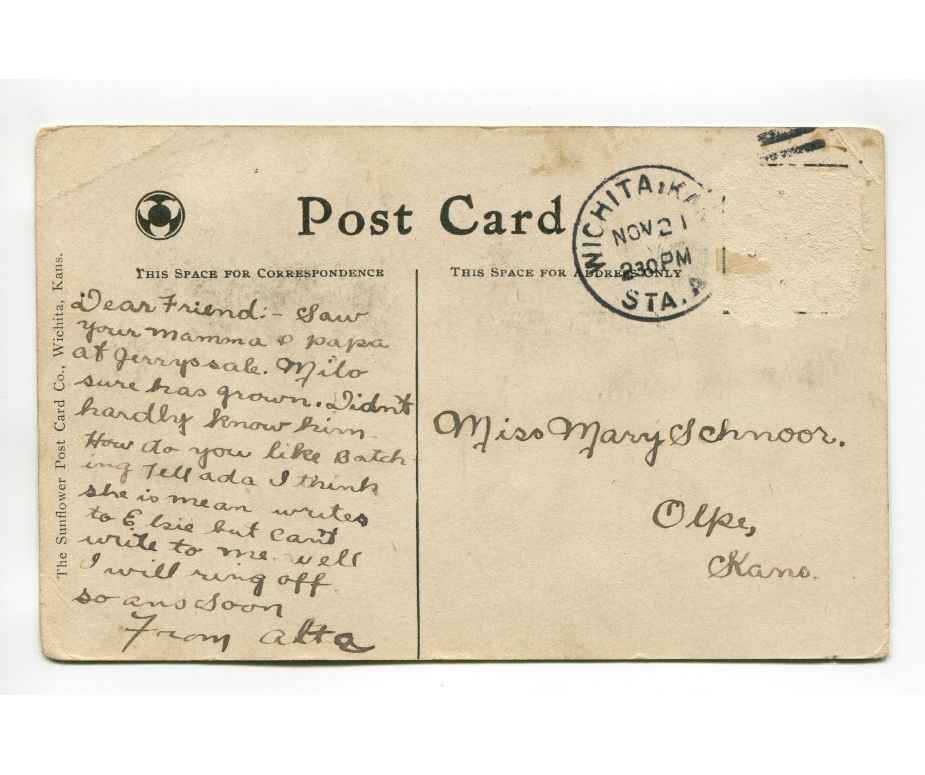 Post Card
WICHITA, KA
NOV 21
230 PM
STA. A
THIS SPACE FOR CORRESPONDENCE
THIS SPACE FOR ADDRESS ONLY
The Sunflower Post Card Co., Wichita, Kans.
Dear Friend:- Saw
your mamma & papa
at Jerryssale. Milo
sure has grown. Didn't
hardly know him.
How do you like Batch-
ing Tell ada I think
she is mean writes
to Elsie but Can't
write to me. well
I will ring off.
so ans Soon
From Alta
Miss Mary Schnoor.
Olpe,
Kans.